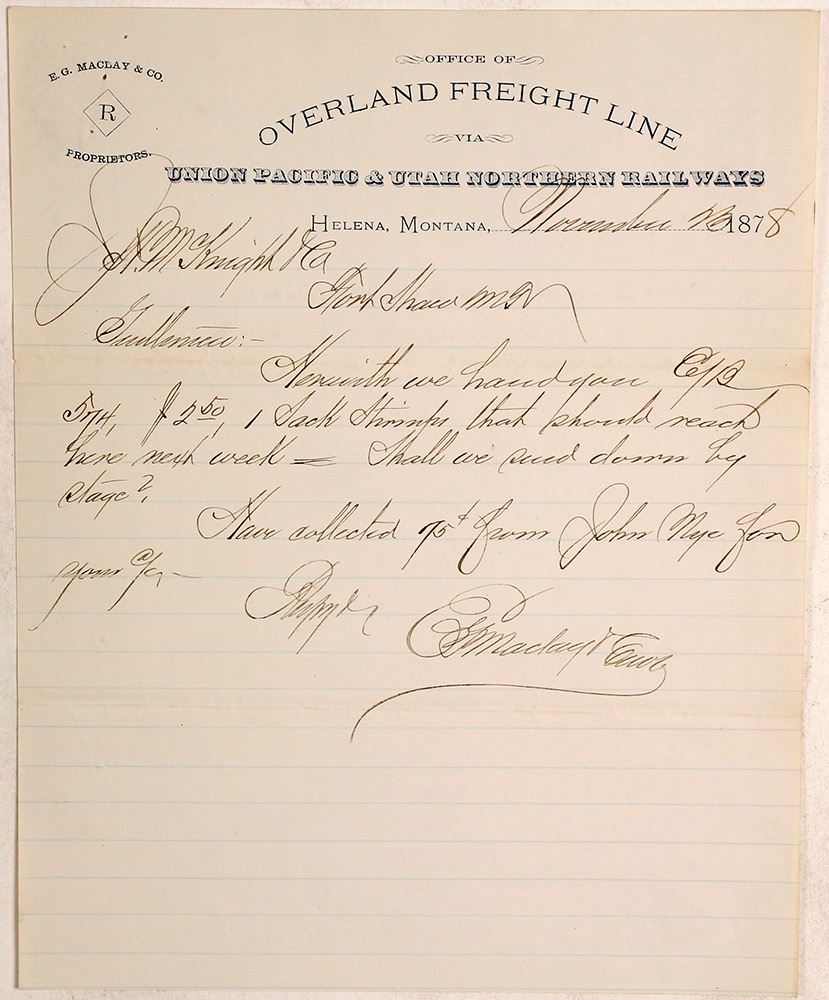 E. G. MACLAY & CO.
R
PROPRIETORS.
OFFICE OF
OVERLAND FREIGHT LINE
VIA
UNION PACIFIC & UTAH NORTHERN RAILWAYS
HELENA, MONTANA, November 23 1878
J. H. McKnight & Co
Fort Shaw M T
Gentlemen:-
Herewith we hand you C/B
574, $2.50, 1 Sack Shrimps that should reach
here next week = Shall we send down by
stage?
Have collected 75¢ from John Nye for
your a/c -
Respy &c
E G Maclay & Co